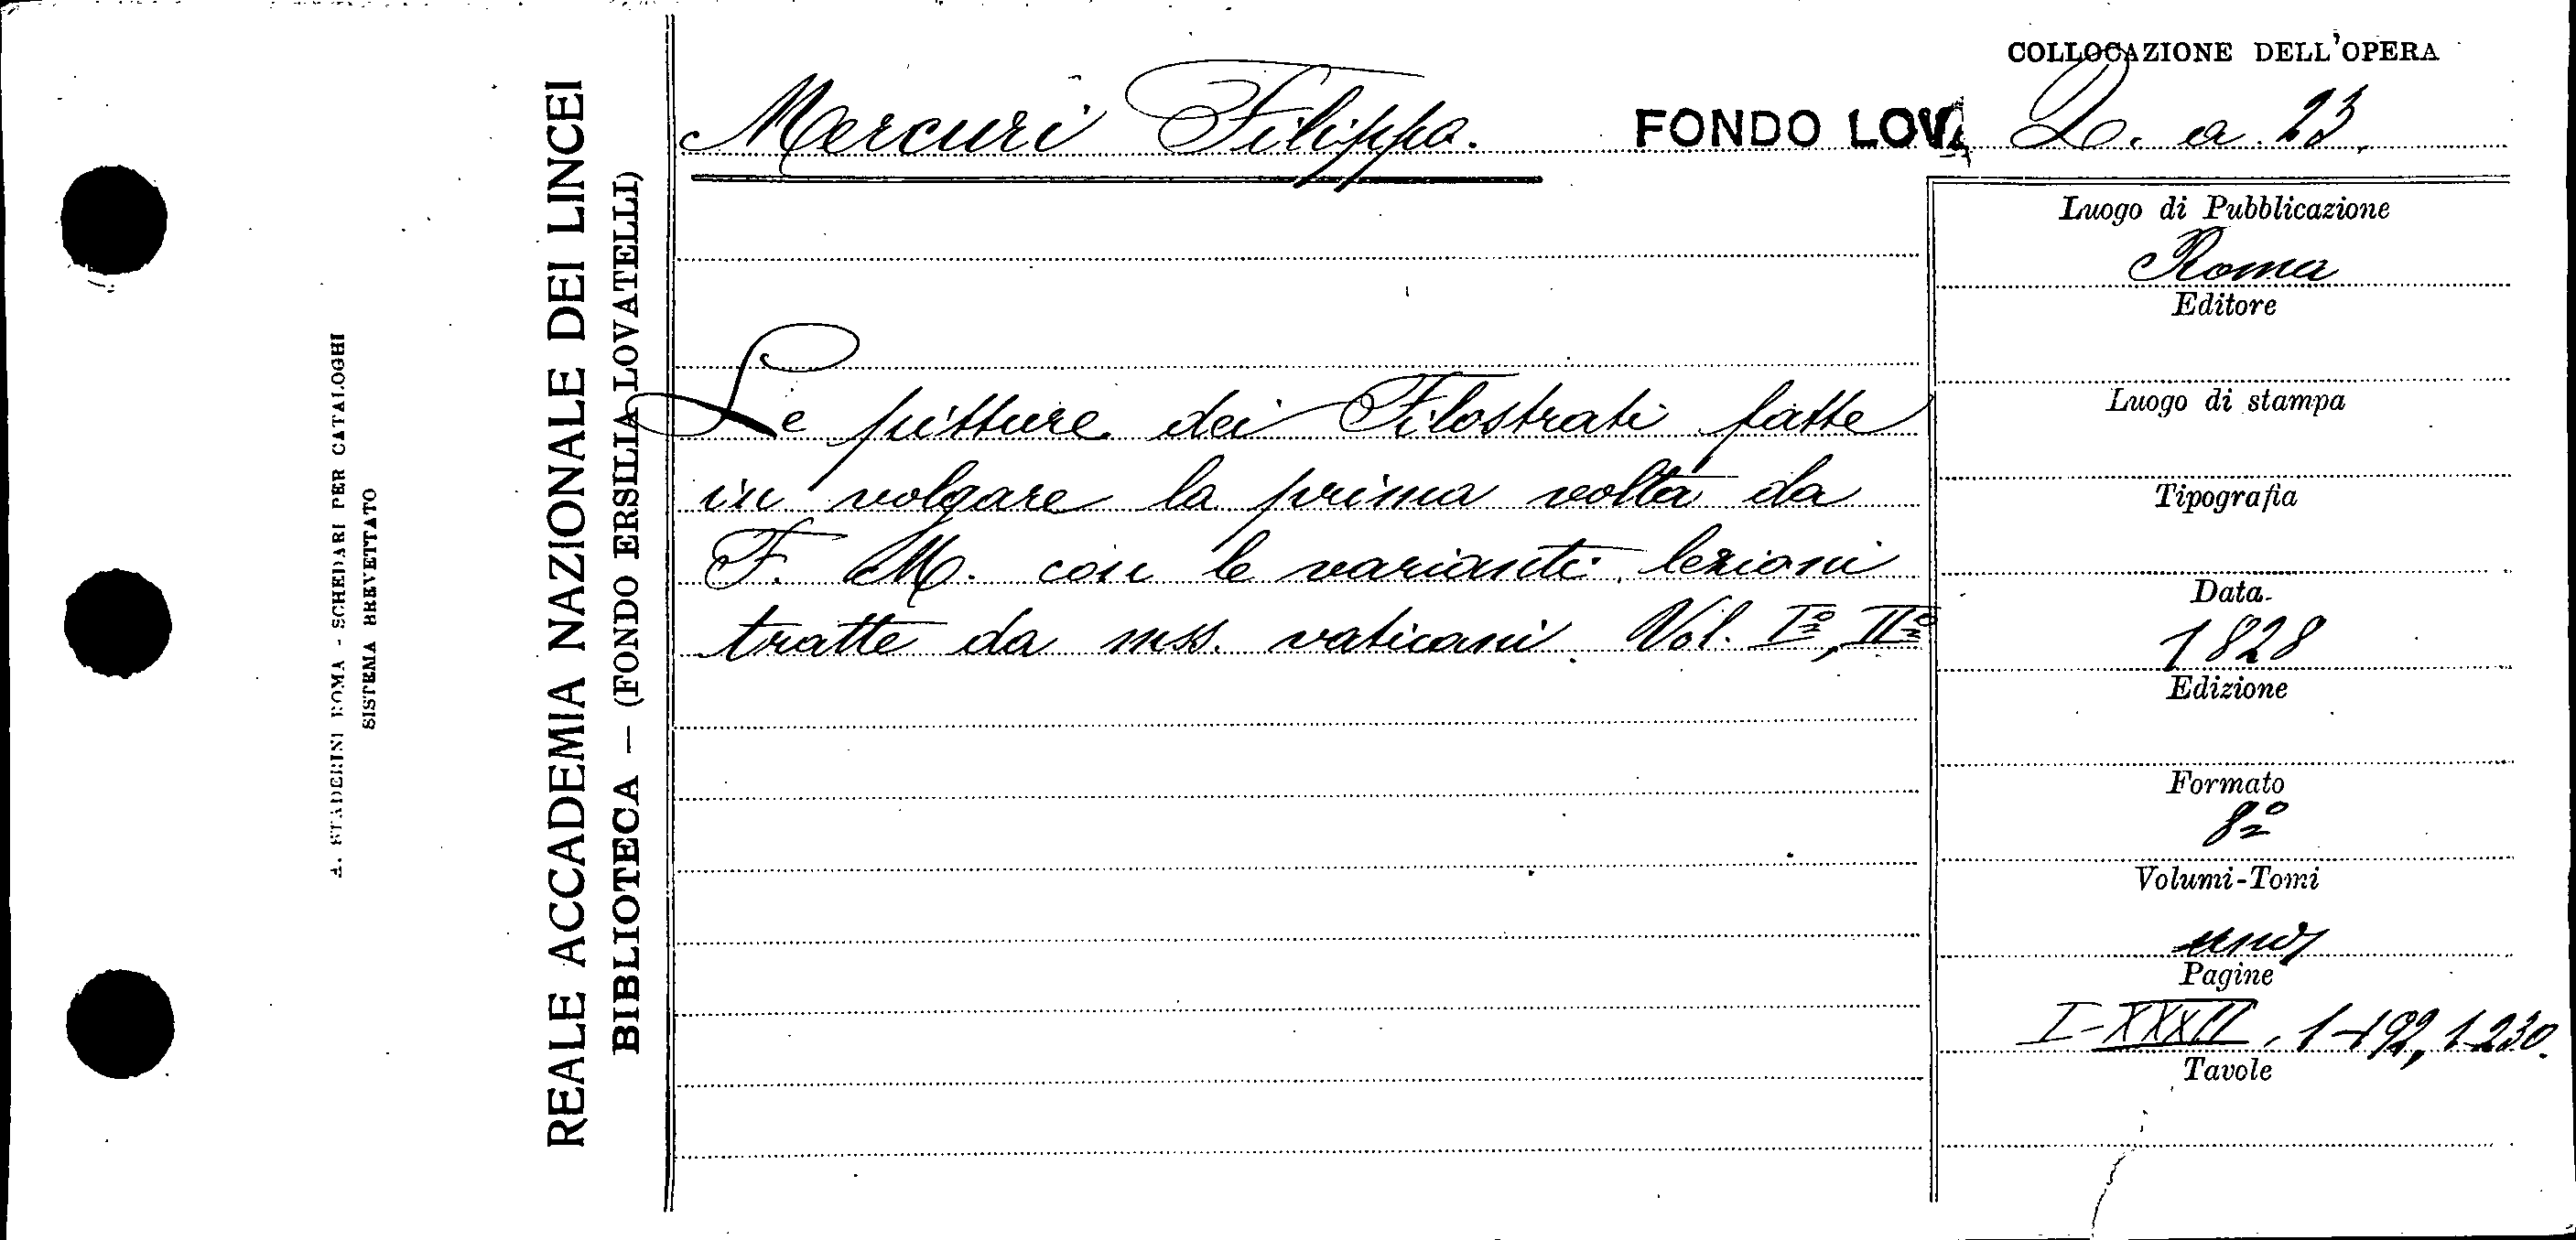 COLLOCAZIONE DELL'OPERA
Mercuri Filippo.
FONDO LOVA
L. a. 23.
Le pitture dei Filostrati fatte
in volgare la prima volta da
F. M. con le varianti lezioni
tratte da mss. vaticani. Vol. Iº, IIº
Luogo di Pubblicazione
Roma
Editore
Luogo di stampa
Tipografia
Data
1828
Edizione
Formato
8º
Volumi-Tomi
uno
Pagine
I-XXXII, 1-192, 1-230.
Tavole
REALE ACCADEMIA NAZIONALE DEI LINCEI
BIBLIOTECA — (FONDO ERSILIA LOVATELLI)
A. STADERINI ROMA - SCHEDARI PER CATALOGHI
SISTEMA BREVETTATO